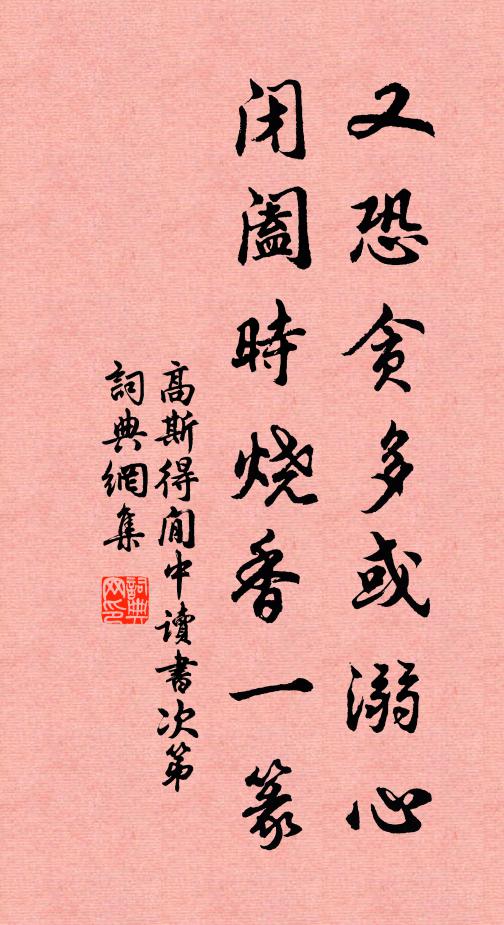 又恐贪多或溺心
闭阖時烧香一篆
高斯得閒中讀書次第
詞典網集
詞典网印